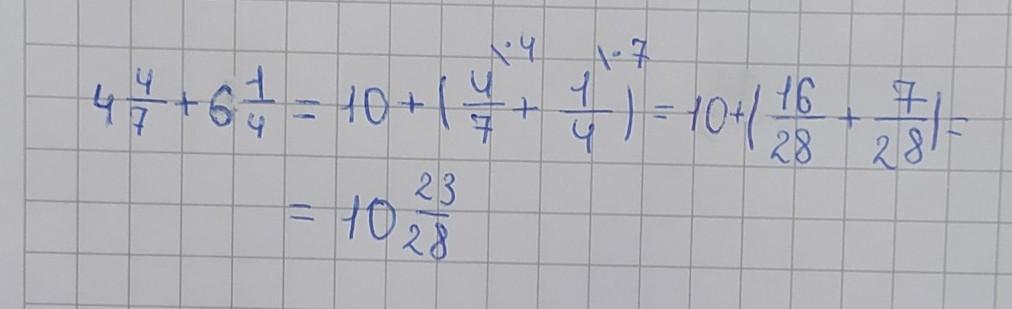 4 4/7 + 6 1/4 = 10 + ( 4/7 \·4 + 1/4 \·7 ) = 10 + ( 16/28 + 7/28 ) =
= 10 23/28